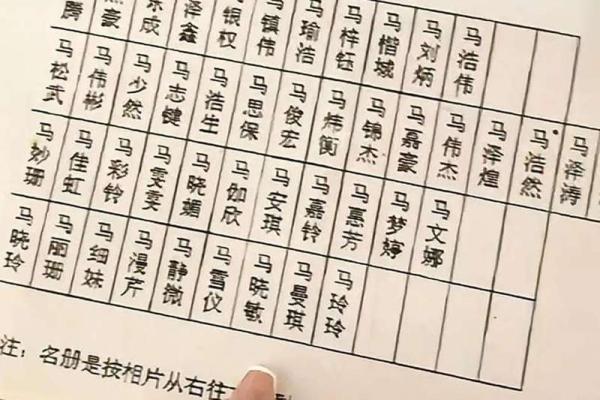 腾 豪 成 泽鑫 银权 马镇伟 马瑜洁 马梓钰 马楷城 马刘炳 马浩伟
马松武 马伟彬 马少然 马志键 马浩生 马思保 马俊宏 马炜衡 马锦杰 马嘉豪 马伟杰 马泽煌 马浩然 马泽涛
马妙珊 马佳虹 马彩铃 马雯雯 马晓媚 马伽欣 马安琪 马嘉铃 马惠芳 马梦婷 马文娜
马晓玲 马丽珊 马细妹 马漫芹 马静微 马雪仪 马晓敏 马曼琪 马玲玲
注：名册是按相片从右往